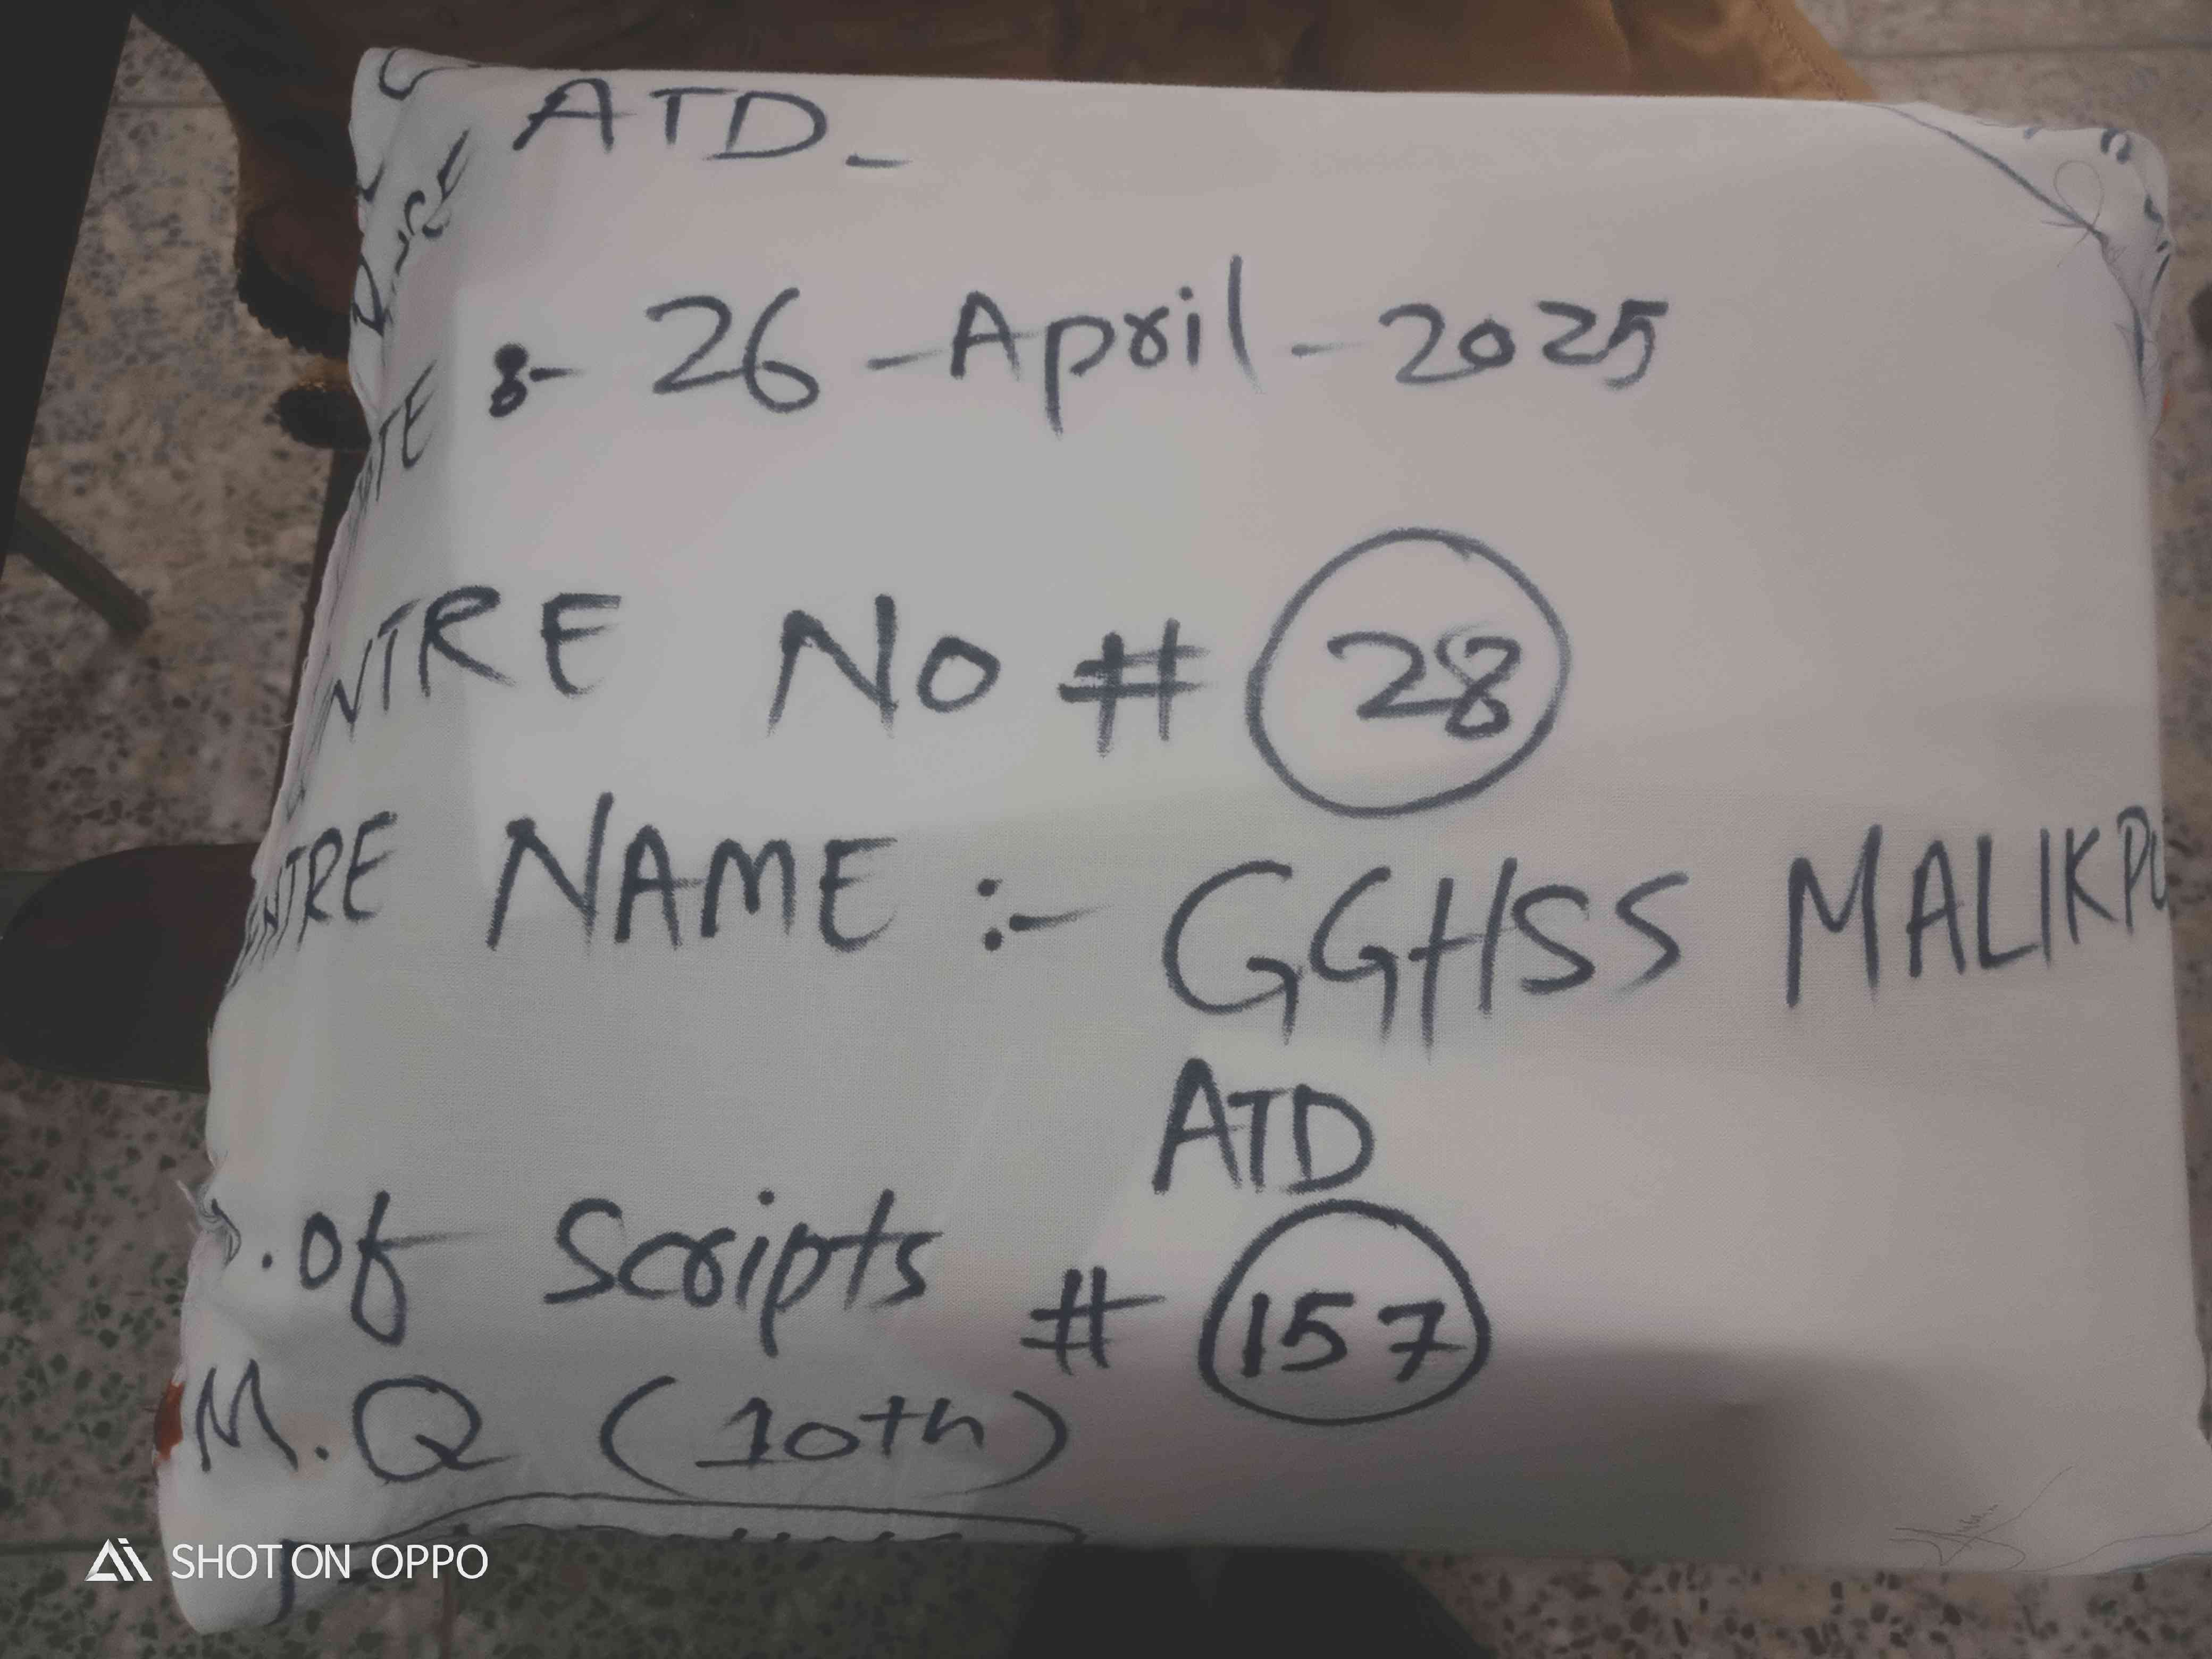 ATD-
:- 26-April-2025
NTRE No # 28
ENTRE NAME :- GGHSS MALIKPU
ATD
. of Scripts # 157
M.Q (10th)
SHOT ON OPPO